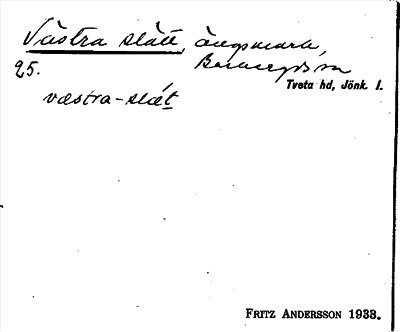 Västra slätt, ängsmark,
95. Barnarps sn
Tveta hd, Jönk. l.
væstra-slæt
FRITZ ANDERSSON 1938.